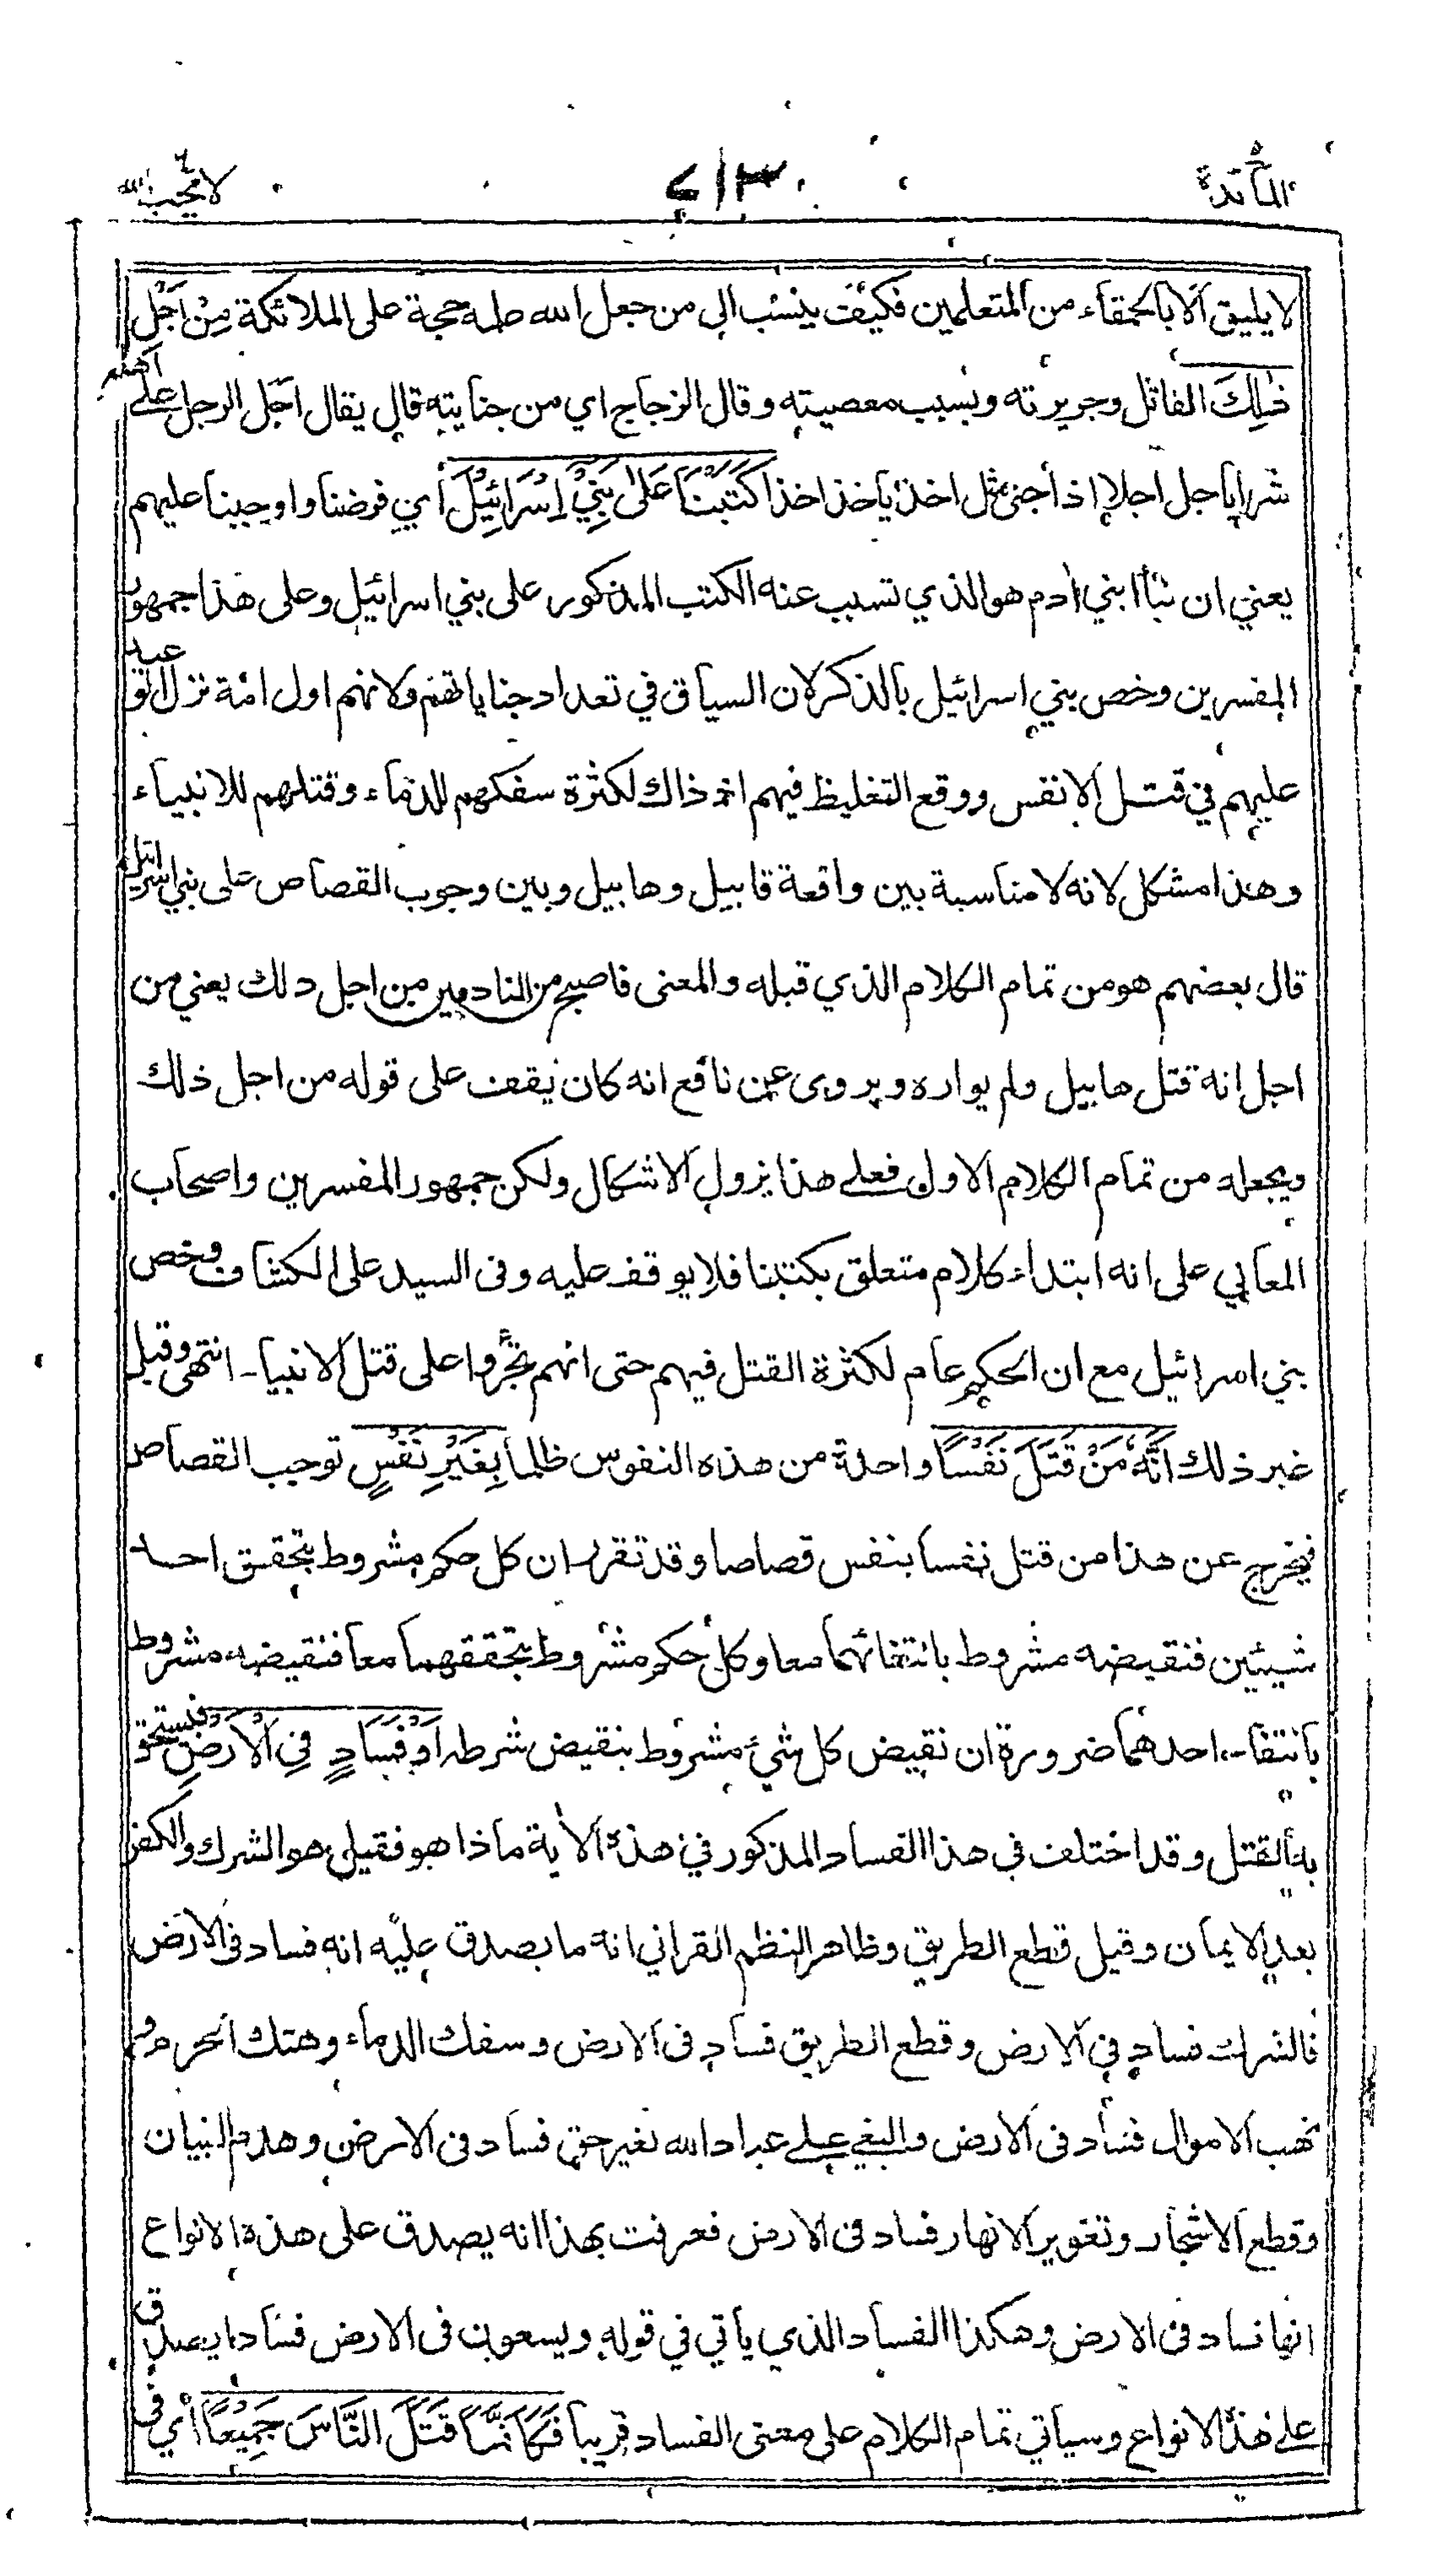 المائدة ٥
٧١٣
لا يحب الله ٦
لا يليق الا بالحمقاء من المتعلمين فكيف ينسب الى من جعل الله علمه حجة على الملائكة مِنْ اَجْلِ
ذٰلِكَ القاتل وجريرته وبسبب معصيته وقال الزجاج اي من جنايته قال يقال اجل الرجل على اهله
شرا ياجل اجلا اذا جنى مثل اخذ ياخذ اخذا كَتَبْنَا عَلٰى بَنِيْ اِسْرَائِيْلَ اي فرضنا واوجبنا عليهم
يعني ان نبأ ابني اٰدم هو الذي تسبب عنه الكتب المذكور على بني اسرائيل وعلى هذا جمهور
المفسرين وخص بني اسرائيل بالذكر لان السياق في تعداد جناياتهم ولانهم اول امة نزل الوعيد
عليهم في قتل الانفس ووقع التغليظ فيهم اذ ذاك لكثرة سفكهم للدماء وقتلهم للانبياء
وهذا مشكل لانه لا مناسبة بين واقعة قابيل وهابيل وبين وجوب القصاص على بني اسرائيل
قال بعضهم هو من تمام الكلام الذي قبله والمعنى فاصبح من النادمين من اجل ذلك يعني من
اجل انه قتل هابيل ولم يواره ويروى عن نافع انه كان يقف على قوله من اجل ذلك
ويجعله من تمام الكلام الاول فعلى هذا يزول الاشكال ولكن جمهور المفسرين واصحاب
المعاني على انه ابتداء كلام متعلق بكتبنا فلا يوقف عليه وفى السيد على الكشاف وخص
بني اسرائيل مع ان الحكم عام لكثرة القتل فيهم حتى انهم تجرؤا على قتل الانبياء انتهى وقيل
غير ذلك اَنَّهٗ مَنْ قَتَلَ نَفْسًا واحدة من هذه النفوس ظلما بِغَيْرِ نَفْسٍ توجب القصاص
فيخرج عن هذا من قتل نفسا بنفس قصاصا وقد تقرر ان كل حكم مشروط بتحقق احد
شيئين فنقيضه مشروط بانتفائهما معا وكل حكم مشروط بتحققهما معا فنقيضه مشروط
بانتفاء احدهما ضرورة ان نقيض كل شيئ مشروط بنقيض شرطه اَوْ فَسَادٍ فِي الْاَرْضِ فيستحق
به القتل وقد اختلف في هذا الفساد المذكور في هذه الاٰية ماذا هو فقيل هو الشرك والكفر
بعد الايمان وقيل قطع الطريق وظاهر النظم القراني انه ما يصدق عليه انه فساد فى الارض
فالشرك فساد في الارض وقطع الطريق فساد فى الارض وسفك الدماء وهتك الحرم و
نهب الاموال فساد فى الارض والبغي على عباد الله بغير حق فساد فى الارض وهدم البنيان
وقطع الاشجار وتغوير الانهار فساد فى الارض فعرفت بهذا انه يصدق على هذه الانواع
انها فساد فى الارض وهكذا الفساد الذي ياتي في قوله ويسعون فى الارض فسادا يصدق
على هذه الانواع وسياتي تمام الكلام على معنى الفساد قريبا فَكَاَنَّمَا قَتَلَ النَّاسَ جَمِيْعًا اي فى